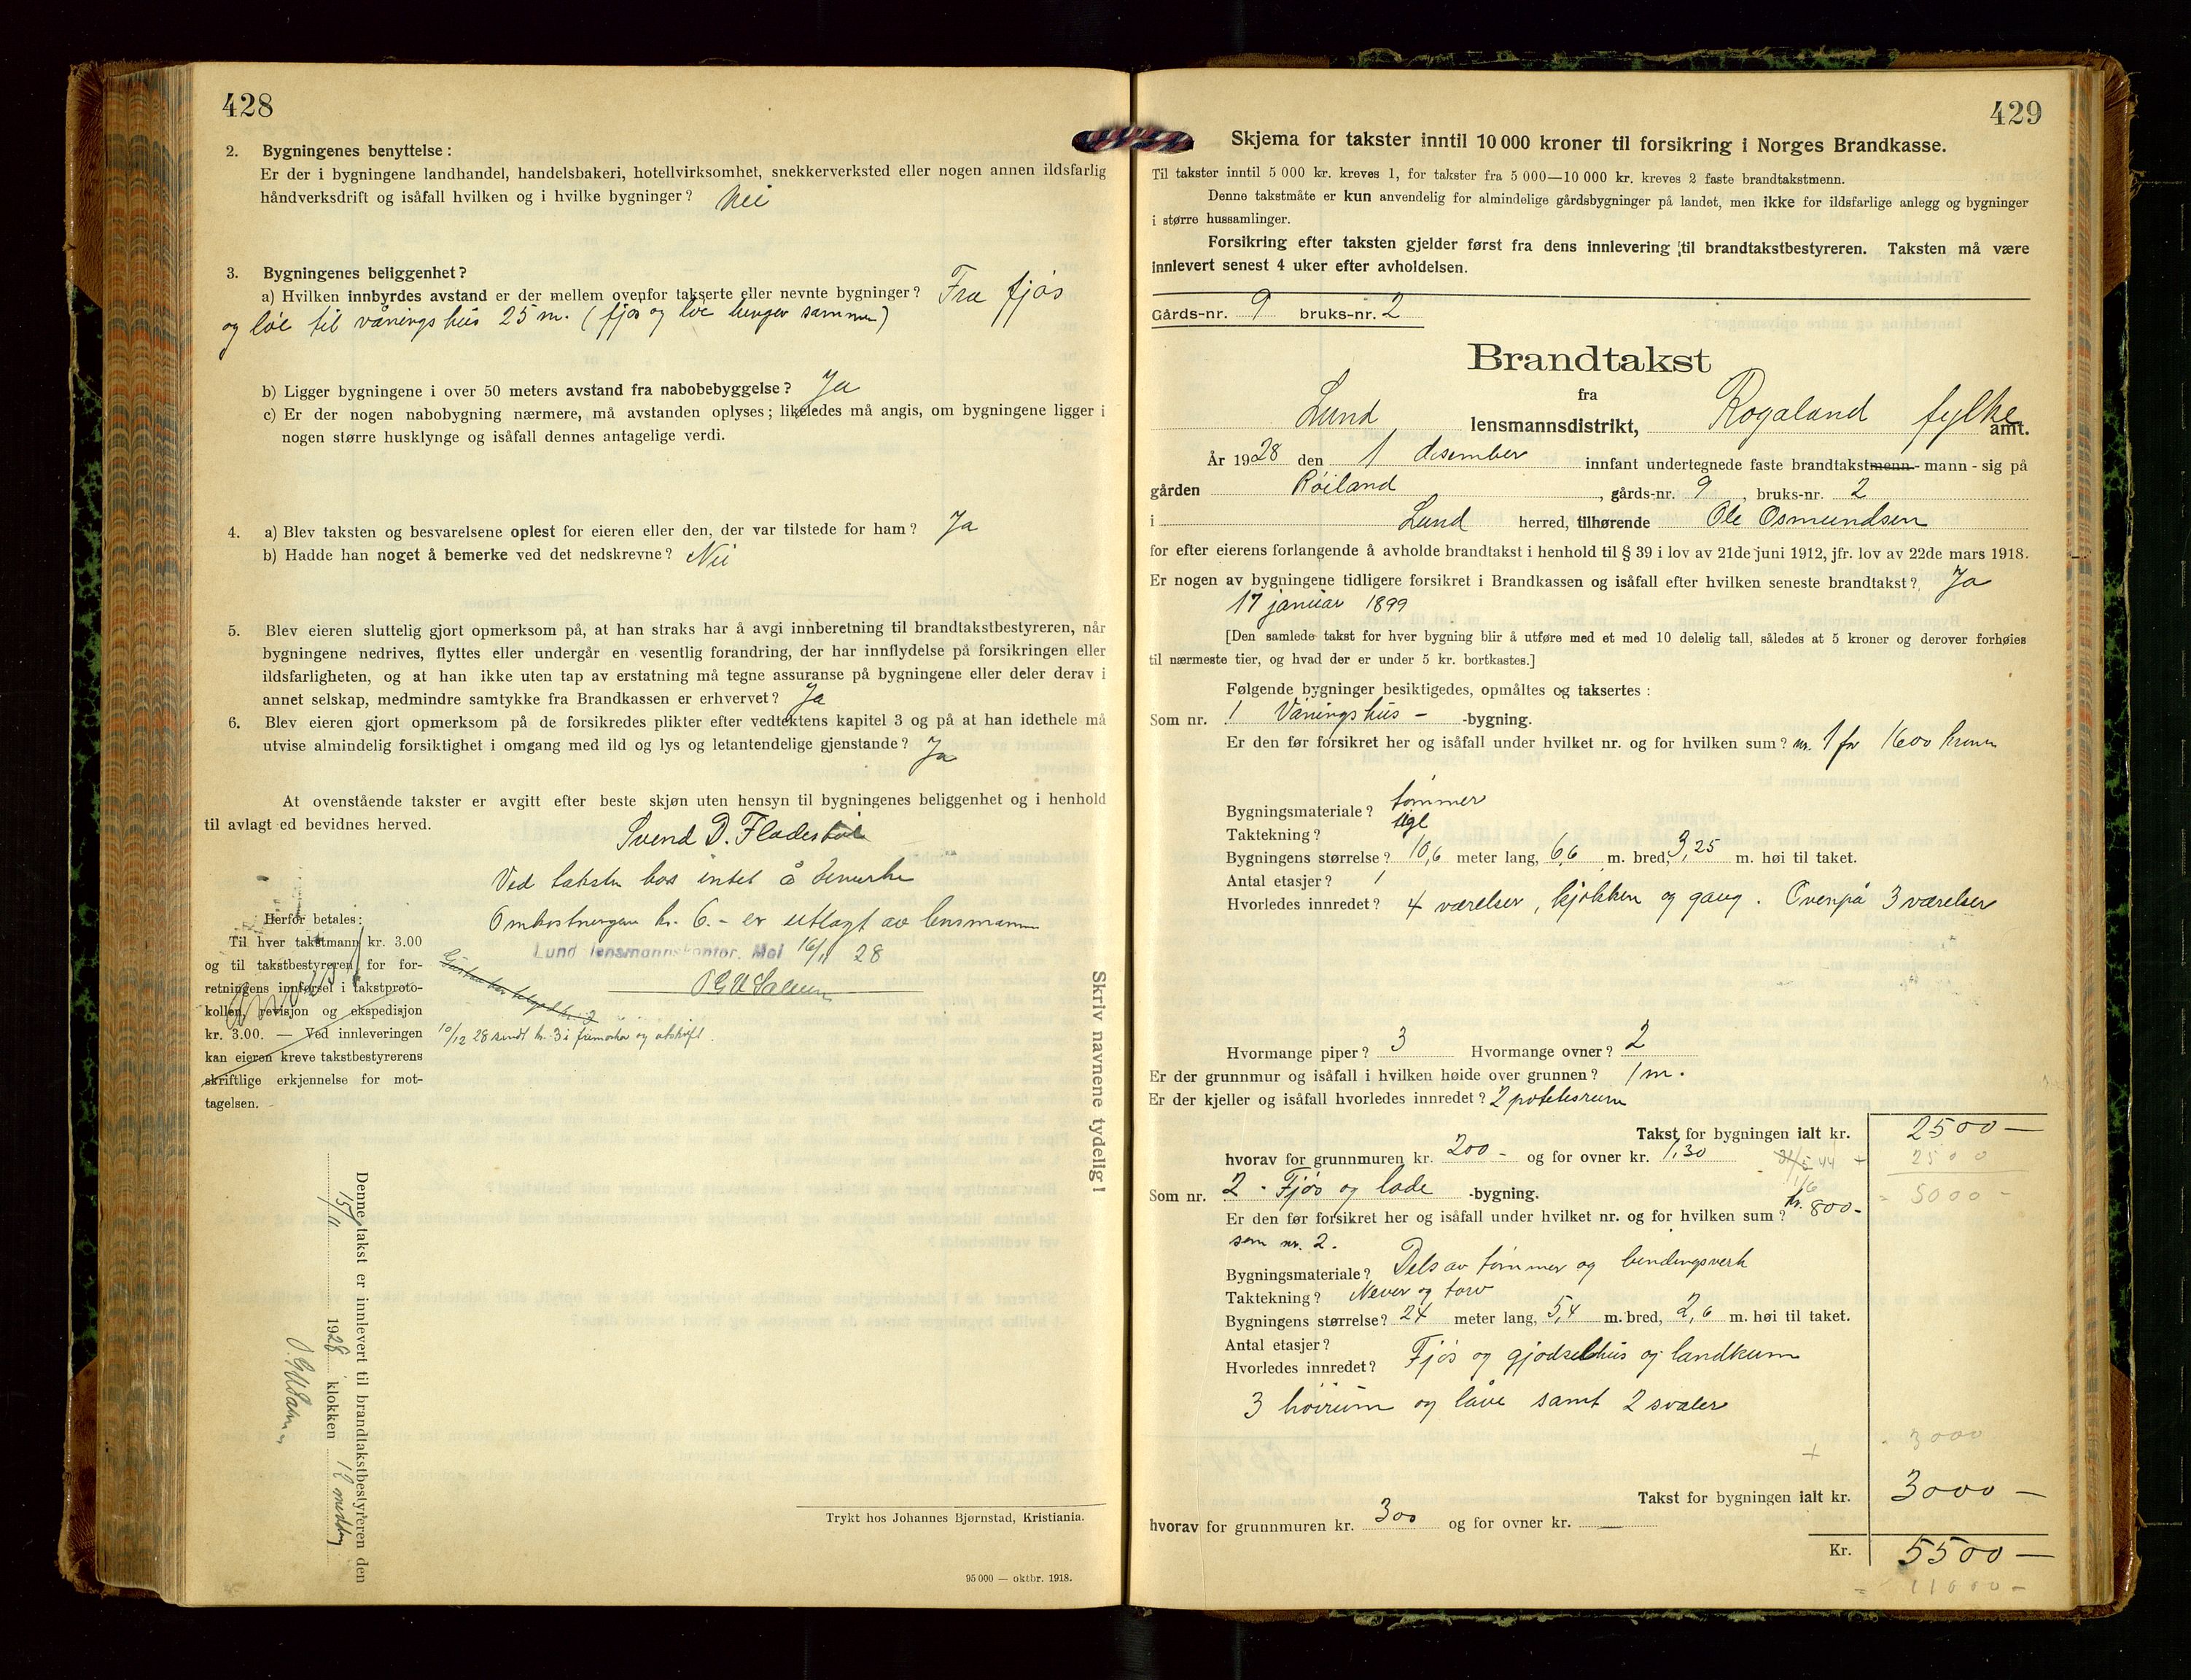 428
2. Bygningenes benyttelse:
Er der i bygningene landhandel, handelsbakeri, hotellvirksomhet, snekkerverksted eller nogen annen ildsfarlig
håndverksdrift og isåfall hvilken og i hvilke bygninger? Nei
3. Bygningenes beliggenhet?
a) Hvilken innbyrdes avstand er der mellem ovenfor takserte eller nevnte bygninger? Fra fjøs
og løe til våningshus 25 m. (fjøs og løe henger sammen)
b) Ligger bygningene i over 50 meters avstand fra nabobebyggelse? Ja
c) Er der nogen nabobygning nærmere, må avstanden oplyses; likeledes må angis, om bygningene ligger i
nogen større husklynge og isåfall dennes antagelige verdi.
4. a) Blev taksten og besvarelsene oplest for eieren eller den, der var tilstede for ham? Ja
b) Hadde han noget å bemerke ved det nedskrevne? Nei
5. Blev eieren sluttelig gjort opmerksom på, at han straks har å avgi innberetning til brandtakstbestyreren, når
bygningene nedrives, flyttes eller undergår en vesentlig forandring, der har innflydelse på forsikringen eller
ildsfarligheten, og at han ikke uten tap av erstatning må tegne assuranse på bygningene eller deler derav i
annet selskap, medmindre samtykke fra Brandkassen er erhvervet? Ja
6. Blev eieren gjort opmerksom på de forsikredes plikter efter vedtektens kapitel 3 og på at han idethele må
utvise almindelig forsiktighet i omgang med ild og lys og letantendelige gjenstande? Ja
At ovenstående takster er avgitt efter beste skjøn uten hensyn til bygningenes beliggenhet og i henhold
til avlagt ed bevidnes herved.
Svend D. Fladestøl
Ved taksten has intet å bemerke
Omkostningene kr. 6.- er utlagt av lensmannen
Lund lensmannskontor, Moi 16/11 28
10/12 28 sendt kr. 3 i frimerker og avskrift.
Herfor betales:
Til hver takstmann kr. 3.00
og til takstbestyreren for for-
retningens innførsel i takstproto-
kollen, revisjon og ekspedisjon
kr. 3.00. — Ved innleveringen
kan eieren kreve takstbestyrerens
skriftlige erkjennelse for mot-
tagelsen.
Skriv navnene tydelig!
Denne takst er innlevert til brandtakstbestyreren den
15/11 1928 klokken 12 middag
Trykt hos Johannes Bjørnstad, Kristiania.
95 000 — oktbr. 1918.
429
Skjema for takster inntil 10 000 kroner til forsikring i Norges Brandkasse.
Til takster inntil 5 000 kr. kreves 1, for takster fra 5 000—10 000 kr. kreves 2 faste brandtakstmenn.
Denne takstmåte er kun anvendelig for almindelige gårdsbygninger på landet, men ikke for ildsfarlige anlegg og bygninger
i større hussamlinger.
Forsikring efter taksten gjelder først fra dens innlevering til brandtakstbestyreren. Taksten må være
innlevert senest 4 uker efter avholdelsen.
Gårds-nr. 9 bruks-nr. 2
Brandtakst
fra
Lund lensmannsdistrikt, Rogaland fylke amt.
År 1928 den 1 desember innfant undertegnede faste brandtakstmenn - mann - sig på
gården Røiland, gårds-nr. 9, bruks-nr. 2
i Lund herred, tilhørende Ole Osmundsen
for efter eierens forlangende å avholde brandtakst i henhold til § 39 i lov av 21de juni 1912, jfr. lov av 22de mars 1918.
Er nogen av bygningene tidligere forsikret i Brandkassen og isåfall efter hvilken seneste brandtakst? Ja
17 januar 1899
[Den samlede takst for hver bygning blir å utføre med et med 10 delelig tall, således at 5 kroner og derover forhøies
til nærmeste tier, og hvad der er under 5 kr. bortkastes.]
Følgende bygninger besiktigedes, opmåltes og taksertes:
Som nr. 1 Våningshus - -bygning.
Er den før forsikret her og isåfall under hvilket nr. og for hvilken sum? nr. 1 for 1600 kroner
Bygningsmateriale? tømmer
Taktekning? tegl
Bygningens størrelse? 10,6 meter lang, 6,6 m. bred, 3,25 m. høi til taket.
Antal etasjer? 1
Hvorledes innredet? 4 værelser, kjøkken og gang. Ovenpå 3 værelser
Hvormange piper? 3 Hvormange ovner? 2
Er der grunnmur og isåfall i hvilken høide over grunnen? 1 m.
Er der kjeller og isåfall hvorledes innredet? 2 potetesrum
Takst for bygningen ialt kr. 2500 —
hvorav for grunnmuren kr. 200 - og for ovner kr. 130
+ 2500
= 5000 -
Som nr. 2 - Fjøs og lade -bygning.
Er den før forsikret her og isåfall under hvilket nr. og for hvilken sum? kr. 800-
som nr. 2.
Bygningsmateriale? Dels av tømmer og bindingsverk
Taktekning? Never og torv
Bygningens størrelse? 24 meter lang, 5,4 m. bred, 2,6 m. høi til taket.
Antal etasjer?
Hvorledes innredet? Fjøs og gjødselhus og landkum
3 høirum og låve samt 2 svaler
+ 3000
Takst for bygningen ialt kr. 3000 —
hvorav for grunnmuren kr. 300 og for ovner kr. —
Kr. 5500 —
= 11000 -